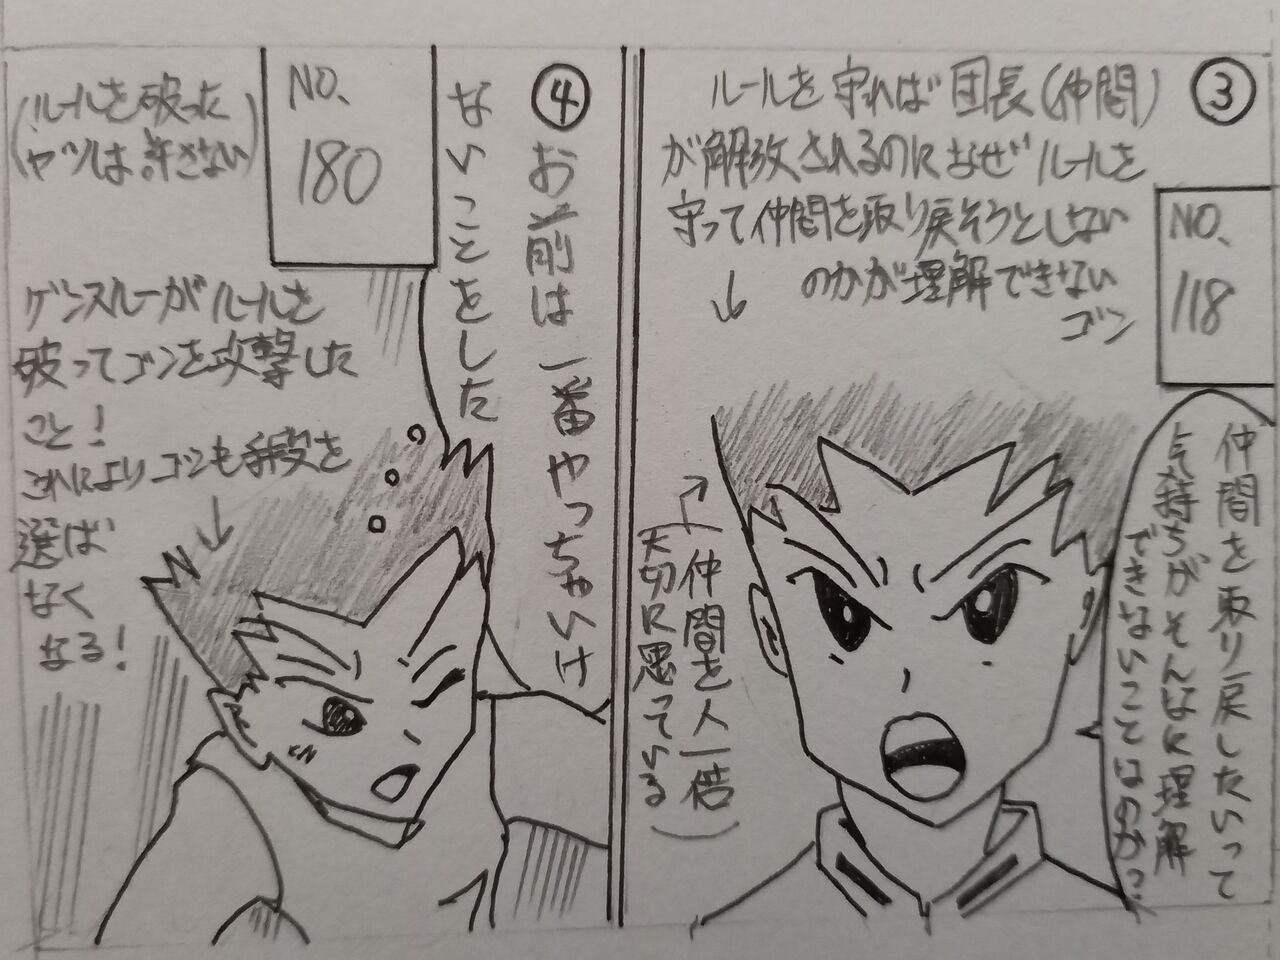 ③
ルールを守れば団長(仲間)
が解放されるのになぜルールを
守って仲間を取り戻そうとしない
のかが理解できない
ゴン
NO.
118
仲間を取り戻したいって
気持ちがそんなに理解
できないことなのか?
仲間を人一倍
大切に思っている
④
お前は一番やっちゃいけ
ないことをした
NO.
180
(ルールを破った
ヤツは許さない)
ゲンスルーがルールを
破ってゴンを攻撃した
こと!
これによりゴンも手段を
選ば
なく
なる!